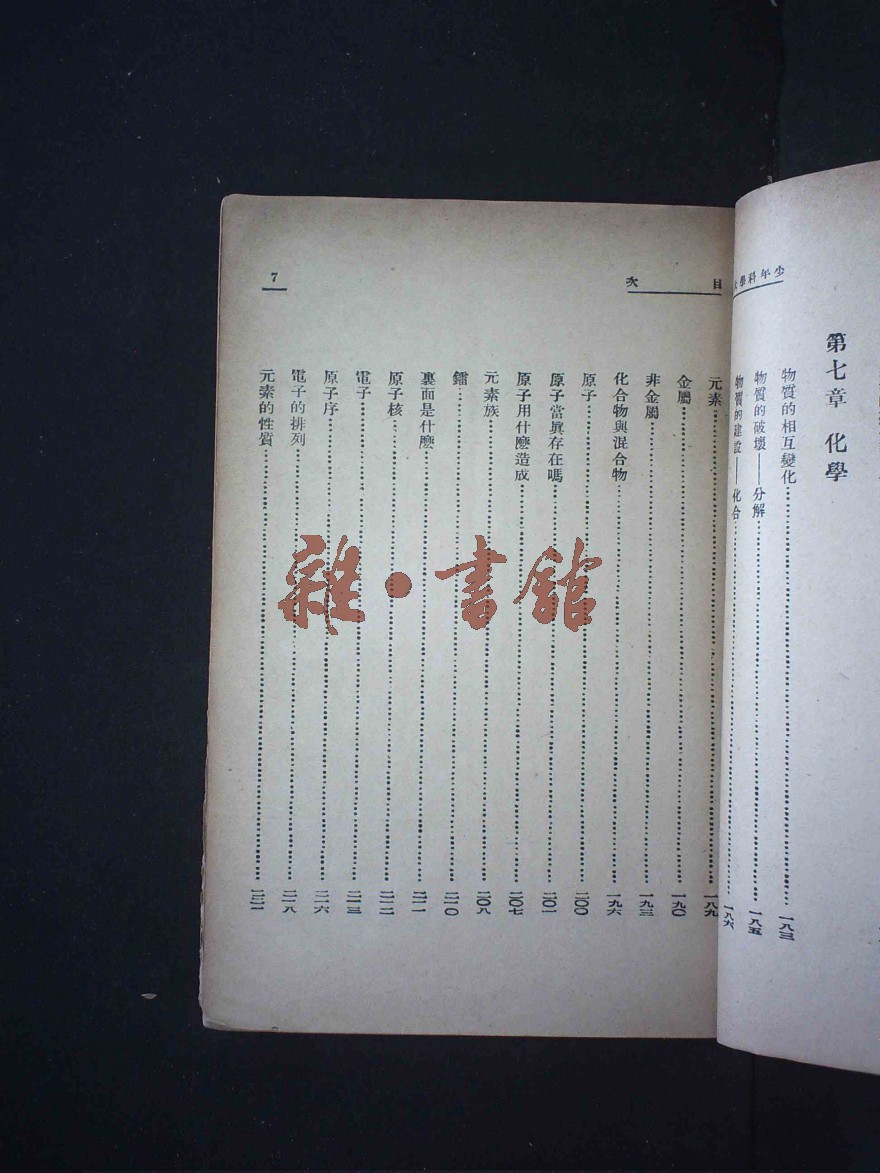 少年科學
第七章 化學
物質的相互變化……一八三
物質的破壞——分解……一八五
物質的建設——化合……一八六
目次
元素……一八九
金屬……一九〇
非金屬……一九三
化合物與混合物……一九六
原子……二〇〇
原子當眞存在嗎……二〇一
原子用什麽造成……二〇七
元素族……二〇八
鐳……二一〇
裏面是什麽……二一一
原子核……二一二
電子……二一三
原子序……二一六
電子的排列……二一八
元素的性質……二二一
7
雜·書館